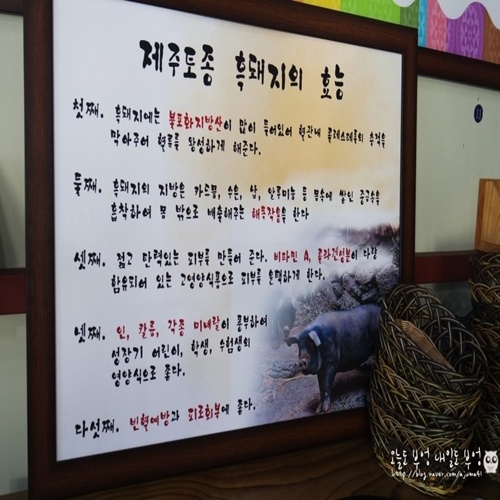 제주토종 흑돼지의 효능
첫째. 흑돼지에는 불포화지방산이 많이 들어있어 혈관내 콜레스테롤의 축적을
막아주어 혈류를 왕성하게 해준다.
둘째. 흑돼지의 지방은 카드뮴, 수은, 납, 알루미늄 등 몸속에 쌓인 중금속을
흡착하여 몸 밖으로 배출해주는 해독작용을 한다
셋째. 젊고 탄력있는 피부를 만들어 준다. 비타민 A, 콜라겐성분이 다량
함유되어 있는 고영양식품으로 피부를 윤택하게 한다.
넷째. 인, 칼륨, 각종 미네랄이 풍부하여
성장기 어린이, 학생, 수험생의
영양식으로 좋다.
다섯째. 빈혈예방과 피로회복에 좋다.
오늘도 부엉 내일도 부엉